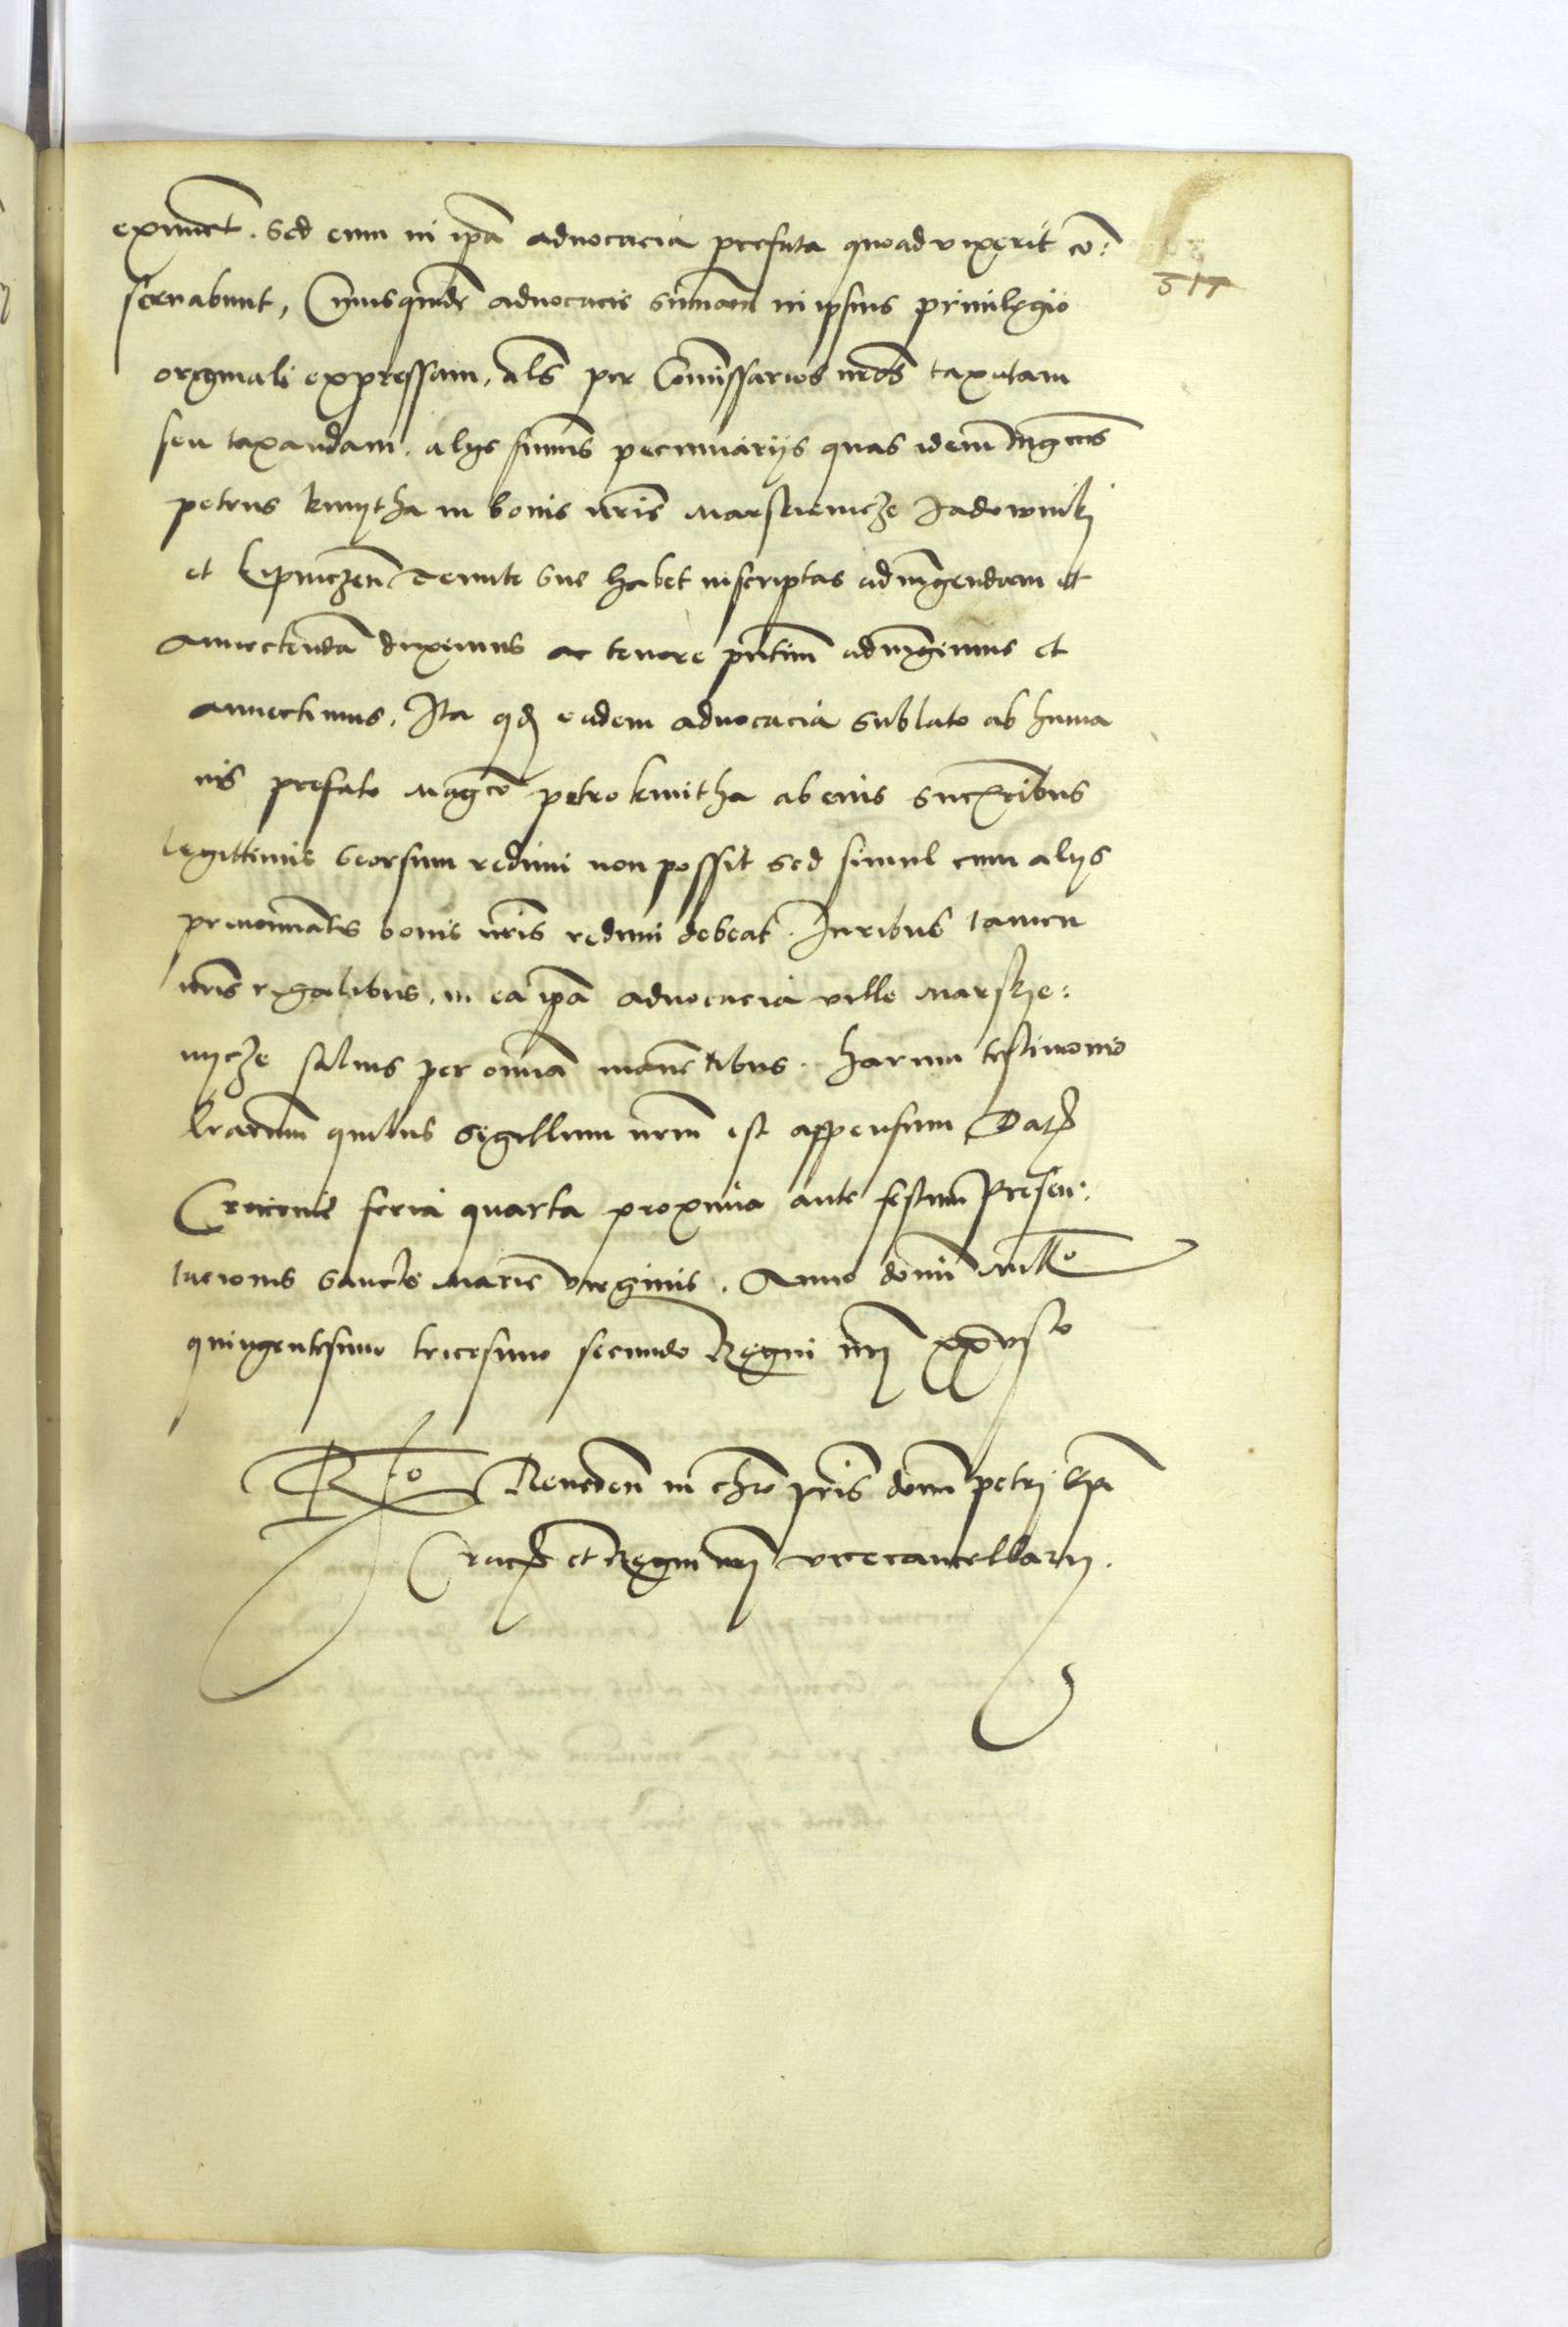 eximent. sed eum in ipa advocacia prefata quoad vixerit co:
servabunt, Cuiusquide advocacie sumam in ipsius privilegio
originali expressam, als per Comissarios nros taxatam
seu taxandam. alys sumis pecuniariis quas idem Mgcus
petrus kmytha in bonis nris Jadowniki
et Tenute sue habet inscriptas adiungendam et
annectenda duximus ac tenore pntim adiungimus et
annectimus. Ita qd eadem advocacia sublato ab huma
nis prefato Magco petro kmitha ab eius sucxribus
legittimis seorsum redimi non possit sed simul cum alys
prenominatis bonis nris redimi debeat. Iuribus tamen
nris regalibus. in ea ipa advocacia ville Marszye:
nycze salvis per omnia manentibus. harum testimonio
lrarum quibus sigillum nrm est appensum Dat
Cracovie feria quarta proxima ante festum Presen:
tacionis sancte Marie virginis. Anno domini Millo
quingentesimo tricesimo secundo Regni nri xxvisto
Rlo Reverden in chro pris domi petri Epi
Crac et Regni nri vicecancellary.
517